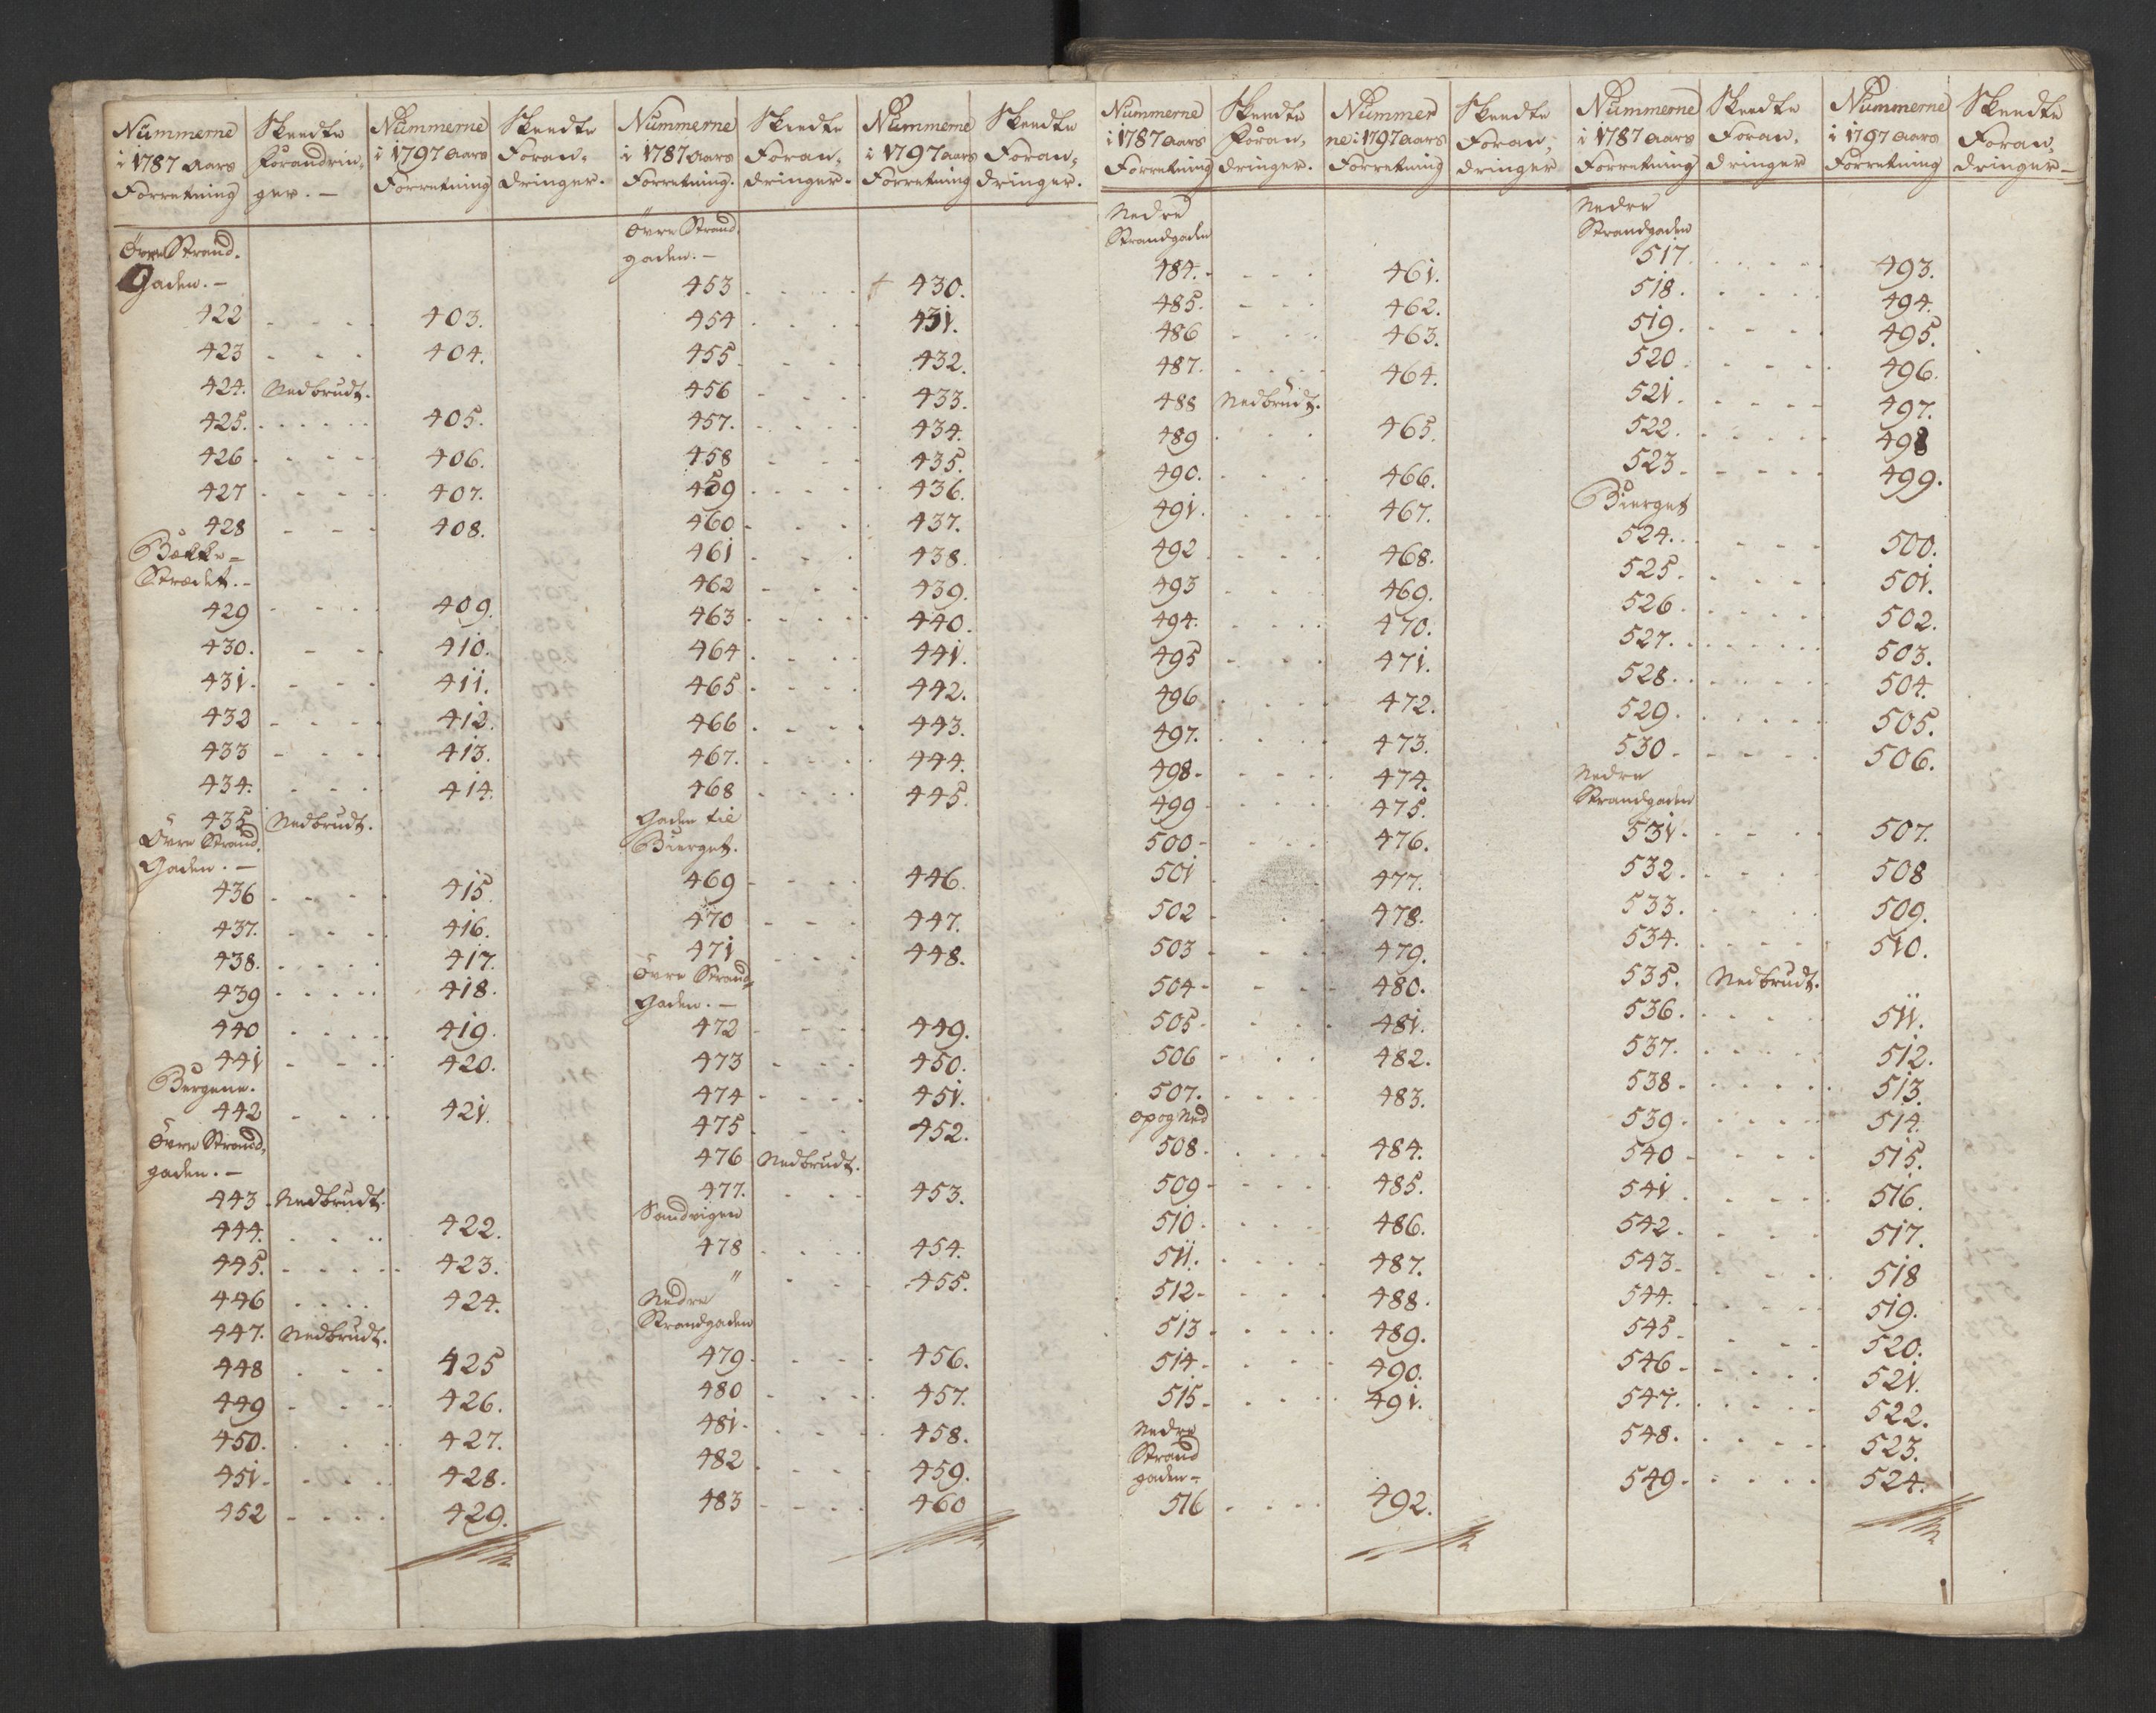 Nummerne i 1787 Aars Forretning | Skeedte Forandrin- ger. – | Nummerne i 1797 Aars Forretning | Skeedte Foran- dringer.
Øvre Strand-
Gaden. –
422 - - - - 403.
423 - - - 404.
424. Nedbrudt.
425. - - - - - 405.
426 - - - - 406.
427 - - - - - 407.
428 - - - 408.
Bække-
Strædet. –
429 - - - - 409.
430. - - - 410.
431. - - - 411.
432 - - - - 412.
433 - - - - 413.
434. - - - 414.
435 Nedbrudt.
Øvre Strand-
Gaden. –
436 - - - - 415.
437. - - - - 416.
438. - - - - 417.
439 - - - - - 418.
440 - - - - 419.
441 - - - - 420.
Bergene.
442 - - - - 421.
Øvre Strand-
gaden. –
443 - Nedbrudt.
444. - - - - 422.
445. - - - - - 423.
446 - - - - 424.
447. Nedbrudt.
448 - - - 425
449 - - - - 426.
450. - - - - 427.
451 - - - - 428.
452 - - - - 429.
Nummerne i 1787 Aars Forretning. | Skeedte Foran- dringer. | Nummerne i 1797 Aars Forretning | Skeedte Foran- dringer.
Øvre Strand-
gaden. –
453 - - - - † 430.
454 - - - - 431.
455 - - - - 432.
456 - - - - 433.
457. - - - - 434.
458 - - - 435.
459 - - - - - 436.
460 - - - - 437.
461 - - - - 438.
462 - - - 439.
463 - - - - - 440.
464 - - - - 441.
465 - - - - 442.
466 - - - - 443.
467. - - - - 444.
468 - - - - 445.
Gaden til
Bierget.
469 - - - - 446.
470 - - - 447.
471 - - - 448.
Øvre Strand-
Gaden. –
472 - - - - 449.
473 - - - 450.
474 - - - - 451.
475 - - - 452.
476 Nedbrudt.
477. - - - 453.
Sandvigen
478 - - - - 454.
" - - - 455.
Nedre
Strandgaden
479 - - - - 456.
480 - - - - 457.
481 - - - - 458.
482 - - - - 459.
483 - - - - 460
Nummerne i 1787 Aars Forretning | Skeedte Foran- dringer. | Nummer ne i 1797 Aars Forretning | Skeedte Foran- dringer
Nedre
Strandgaden
484. - - - - 461.
485. - - - 462.
486 - - - 463.
487. - - - - 464.
488 Nedbrudt.
489 - - - - 465.
490. - - - - 466.
491. - - - - 467.
492 - - - - 468.
493 - - - - 469.
494. - - - - 470.
495 - - - - 471.
496 - - - - 472.
497. - - - - 473.
498 - - - - 474.
499 - - - - 475.
500 - - - - 476.
501 - - - - 477.
502 - - - 478.
503 - - - - 479.
504 - - - - 480.
505 - - - - 481.
506 - - - - 482.
507. - - - - 483.
Op og Ned
508 - - - - 484.
509 - - - - - 485.
510 - - - - 486.
511. - - - - 487.
512 - - - - 488.
513 - - - - - 489.
514 - - - - 490.
515 - - - - 491.
Nedre
Strand
gaden –
516 - - - - 492.
Nummerne i 1787 Aars Forretning | Skeedte Foran- dringer | Nummerne i 1797 Aars Forretning | Skeedte Foran- dringer –
Nedre
Strandgaden
517. - - - - - 493.
518. - - - - 494.
519. - - - - 495.
520 - - - - 496.
521. - - - - 497.
522. - - - - - 498
523 - - - - - 499.
Bierget
524. - - - - 500.
525. - - - - 501.
526 - - - - - 502.
527. - - - - - 503.
528. - - - - - 504.
529. - - - - - 505.
530 - - - - - 506.
Nedre
Strandgaden
531 - - - - 507.
532. - - - - 508
533. - - - - 509.
534. - - - - 510.
535. Nedbrudt.
536. - - - - - 511.
537. - - - - - 512.
538 - - - - - 513.
539. - - - - - 514.
540 - - - - 515.
541. - - - - 516.
542. - - - - 517.
543. - - - - 518
544. - - - - 519.
545. - - - - 520.
546 - - - - - 521.
547. - - - - - 522.
548. - - - - - 523.
549 - - - - - 524.